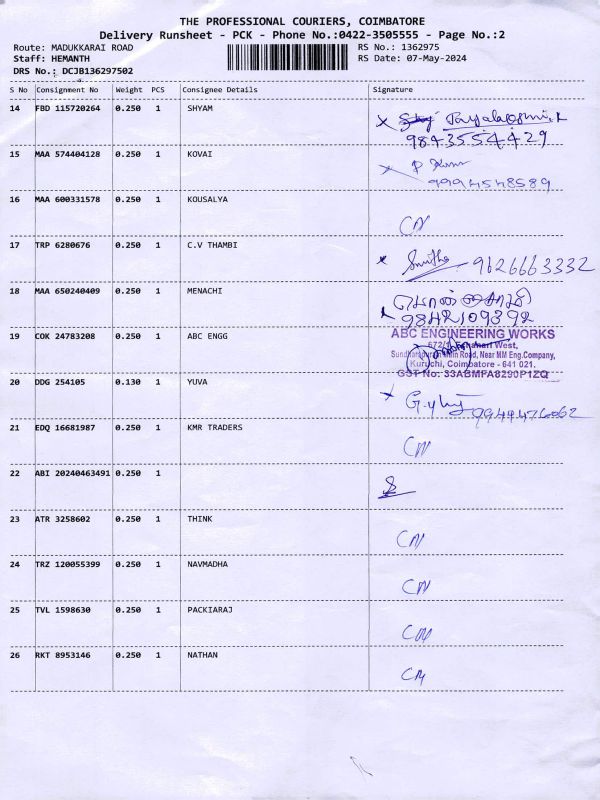 THE PROFESSIONAL COURIERS, COIMBATORE
Delivery Runsheet - PCK - Phone No.:0422-3505555 - Page No.:2
Route: MADUKKARAI ROAD
RS No.: 1362975
Staff: HEMANTH
RS Date: 07-May-2024
DRS No.: DCJB136297502
S No Consignment No Weight PCS Consignee Details Signature
14 FBD 115720264 0.250 1 SHYAM
9843554429
15 MAA 574404128 0.250 1 KOVAI
9994548589
16 MAA 600331578 0.250 1 KOUSALYA CN
17 TRP 6280676 0.250 1 C.V THAMBI 9626663332
18 MAA 650240409 0.250 1 MENACHI
9842109392
19 COK 24783208 0.250 1 ABC ENGG ABC ENGINEERING WORKS
West,
Road, Near MM Eng.Company,
Kuruchi, Coimbatore - 641 021.
GST No: 33ABMFA8290P1ZQ
20 DDG 254105 0.130 1 YUVA
21 EDQ 16681987 0.250 1 KMR TRADERS CN
22 ABI 20240463491 0.250 1
23 ATR 3258602 0.250 1 THINK CN
24 TRZ 120055399 0.250 1 NAVMADHA CN
25 TVL 1598630 0.250 1 PACKIARAJ CN
26 RKT 8953146 0.250 1 NATHAN CN